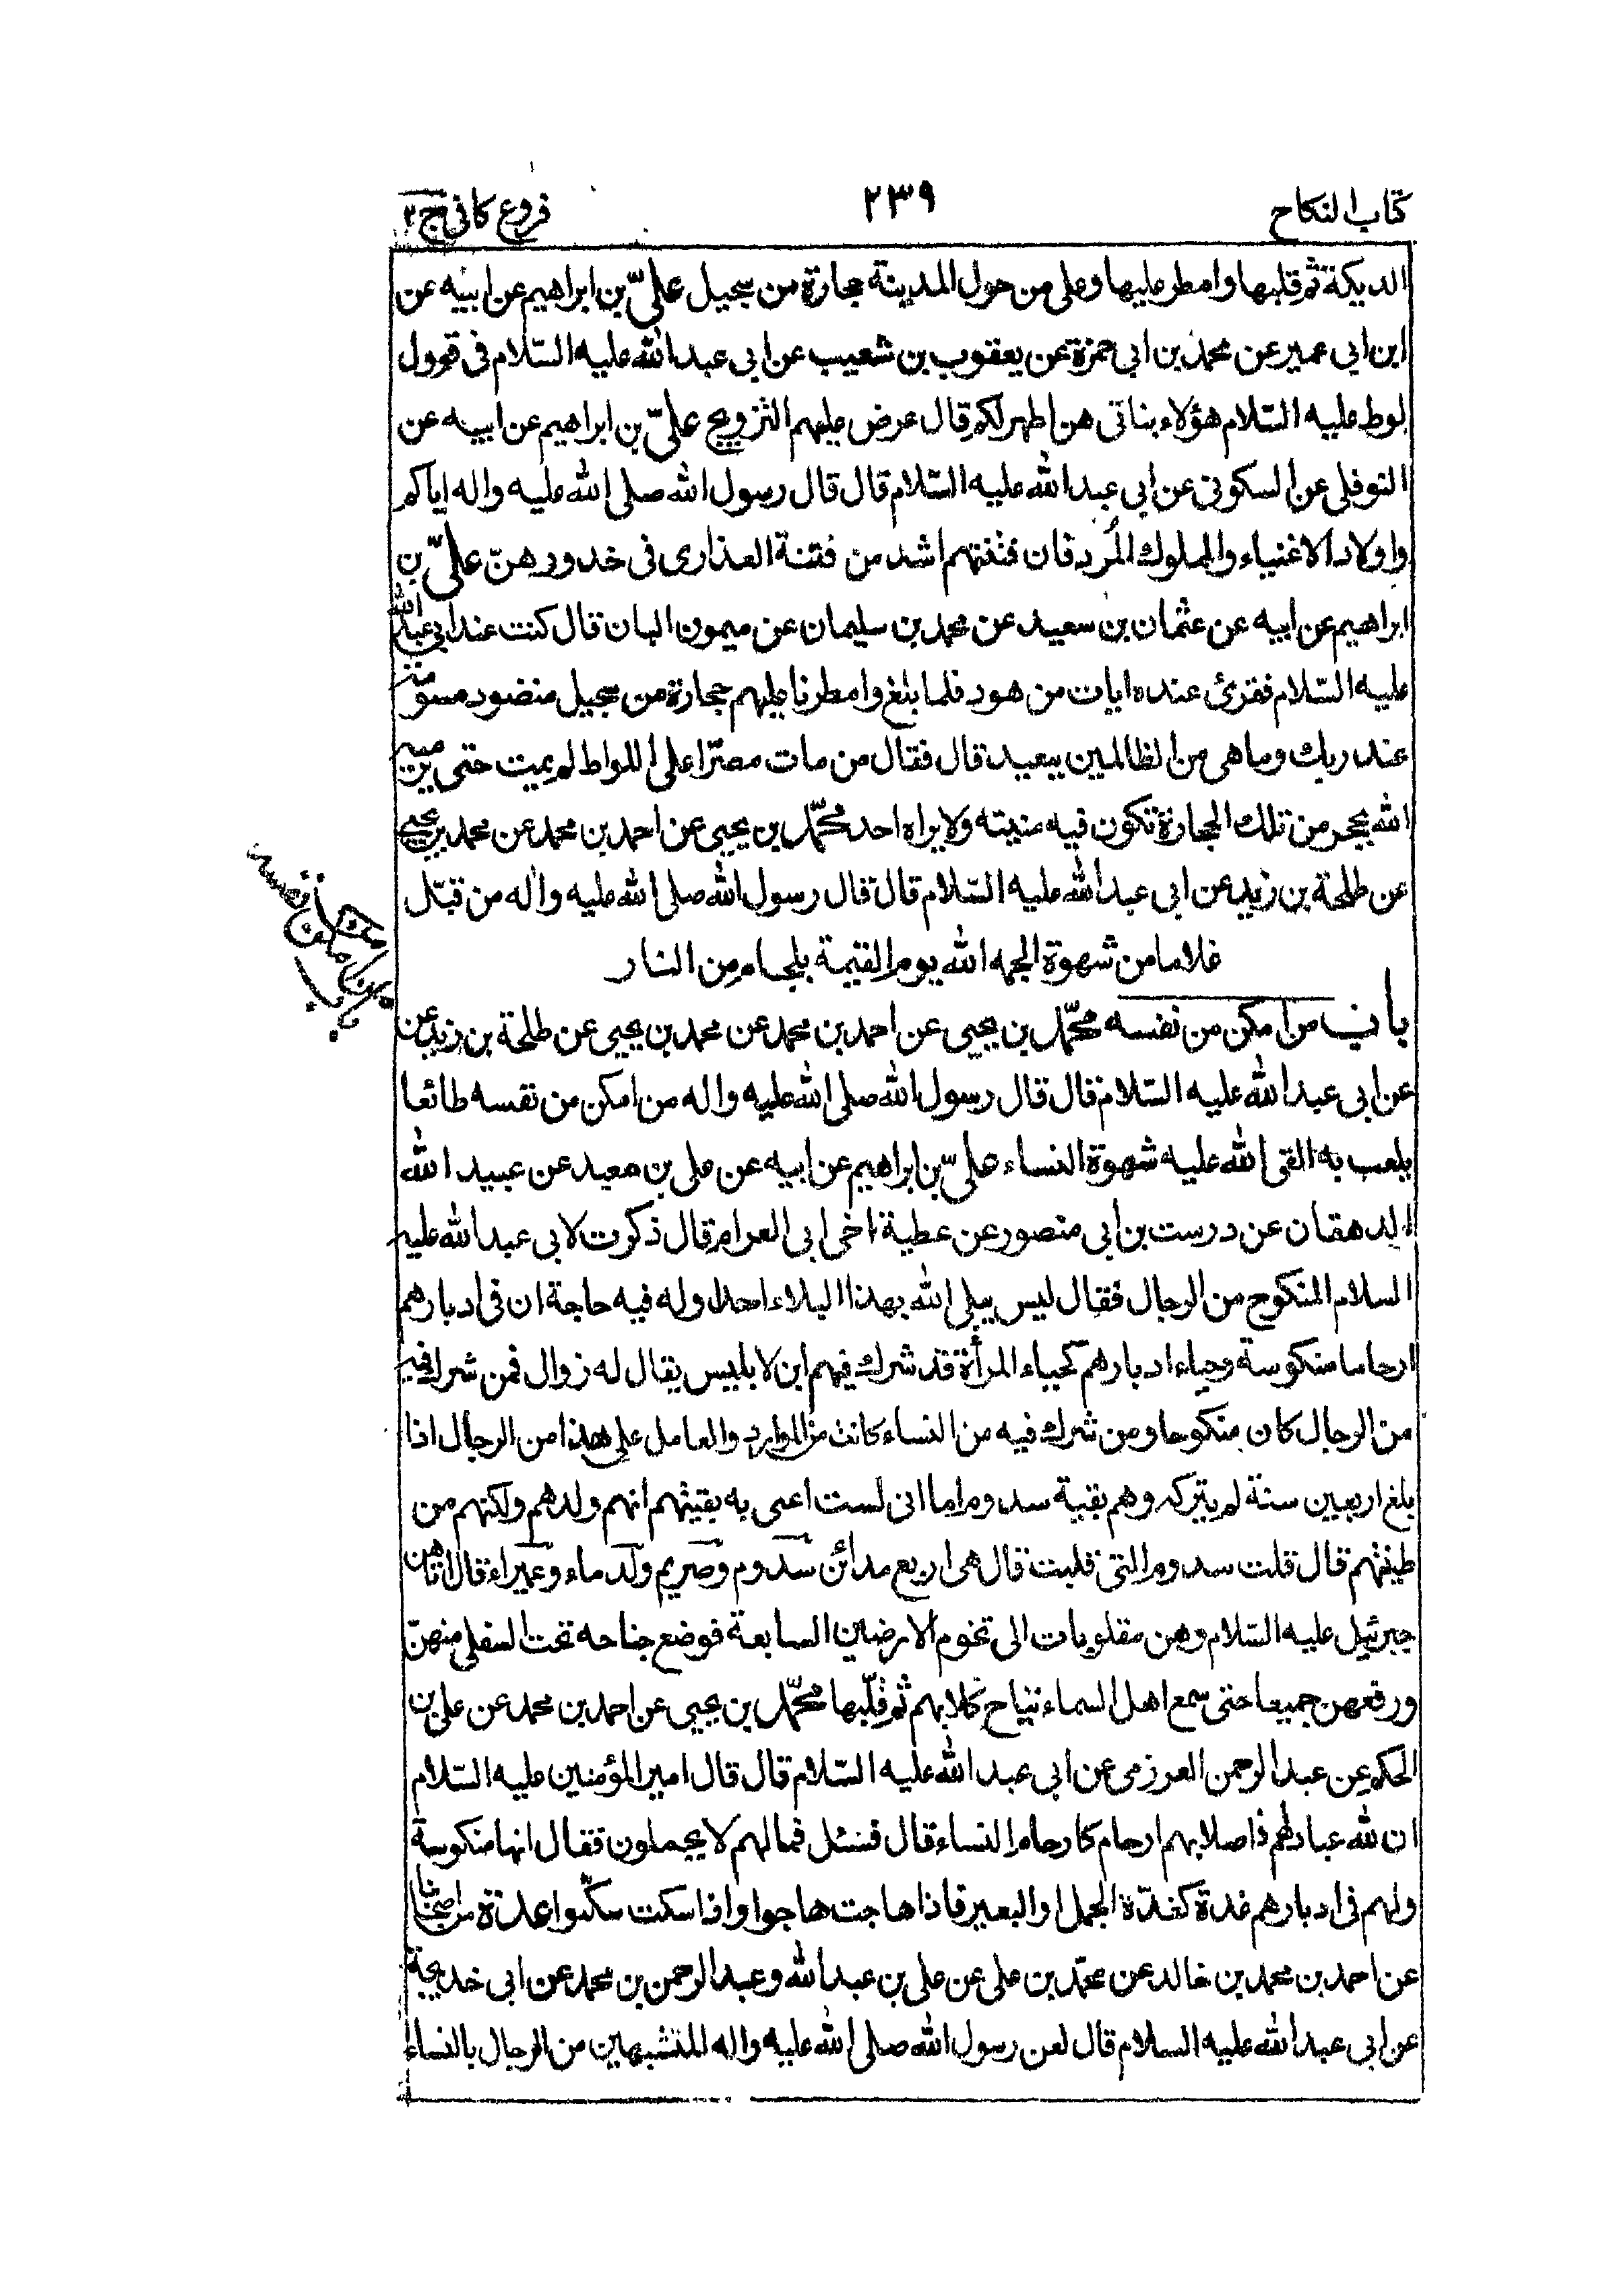 كتاب النكاح ٢٣٩ فروع كافى ج٢
الديكة ثم قلبها وامطر عليها وعلى من حول المدينة حجارة من سجيل علىّ بن ابراهيم عن ابيه عن
ابن ابى عمير عن محمد بن ابى حمزة عن يعقوب بن شعيب عن ابى عبد الله عليه السّلام فى قول
لوط عليه السّلام هؤلاء بناتى هن اطهر لكم قال عرض عليهم التزويج علىّ بن ابراهيم عن ابيه عن
النوفلى عن السكونى عن ابى عبد الله عليه السّلام قال قال رسول الله صلى الله عليه واله اياكم
واولاد الاغنياء والملوك المُرد فان فتنتهم اشد من فتنة العذارى فى خدورهنّ علىّ بن
ابراهيم عن ابيه عن عثمان بن سعيد عن محمد بن سليمان عن ميمون البان قال كنت عند ابى عبد الله
عليه السّلام فقرئ عنده ايات من هود فلما بلغ وامطرنا عليهم حجارة من سجيل منضود مسوّمة
عند ربك وما هى من الظالمين ببعيد قال فقال من مات مصرّا على اللواط لم يمت حتى يرميه
الله بحجر من تلك الحجارة تكون فيه منيته ولا يراه احد محمّد بن يحيى عن احمد بن محمد عن محمد بن يحيى
عن طلحة بن زيد عن ابى عبد الله عليه السّلام قال قال رسول الله صلى الله عليه واله من قبّل
غلاما من شهوة الجمه الله يوم القيمة بلجام من النار
باب من امكن من نفسه محمّد بن يحيى عن احمد بن محمد عن محمد بن يحيى عن طلحة بن زيد عن
عن ابى عبد الله عليه السّلام قال قال رسول الله صلى الله عليه واله من امكن من نفسه طائعا
يلعب به القى الله عليه شهوة النساء علىّ بن ابراهيم عن ابيه عن على بن معبد عن عبيد الله
الدهقان عن درست بن ابى منصور عن عطية اخى ابى العرام قال ذكرت لابى عبد الله عليه
السلام المنكوح من الرجال فقال ليس يبلى الله بهذا البلاء احدا وله فيه حاجة ان فى ادبارهم
ارحاما منكوسة وحياء ادبارهم كحياء المرأة قد شرك فيهم ابن لابليس يقال له زوال فمن شرك فيه
من الرجال كان منكوحا ومن شرك فيه من النساء كانت من الموارد والعامل على هذا من الرجال اذا
بلغ اربعين سنة لم يتركه وهم بقية سدوم اما انى لست اعنى به بقيتهم انهم ولدهم ولكنهم من
طينتهم قال قلت سدوم التى قلبت قال هى اربع مدائن سدوم وصريم ولدماء وعميراء قال اتاهن
جبرئيل عليه السّلام وهن مقلوبات الى تخوم الارضين السابعة فوضع جناحه تحت السفلى منهنّ
ورفعهن جميعا حتى سمع اهل السماء نباح كلابهم ثم قلّبها محمّد بن يحيى عن احمد بن محمد عن على بن
الحكم عن عبد الرحمن العرزمى عن ابى عبد الله عليه السّلام قال قال امير المؤمنين عليه السّلام
ان لله عبادا لهم فى اصلابهم ارحام كارحام النساء قال فسئل فما لهم لا يحملون فقال انها منكوسة
ولهم فى ادبارهم غدة كغدّة الجمل او البعير فاذا هاجت هاجوا واذا سكنت سكنوا عدة من اصحابنا
عن احمد بن محمد بن خالد عن محمّد بن على عن على بن عبد الله وعبد الرحمن بن محمد عن ابى خديجة
عن ابى عبد الله عليه السلام قال لعن رسول الله صلى الله عليه واله المتشبهين من الرجال بالنساء
باب
من نفسه